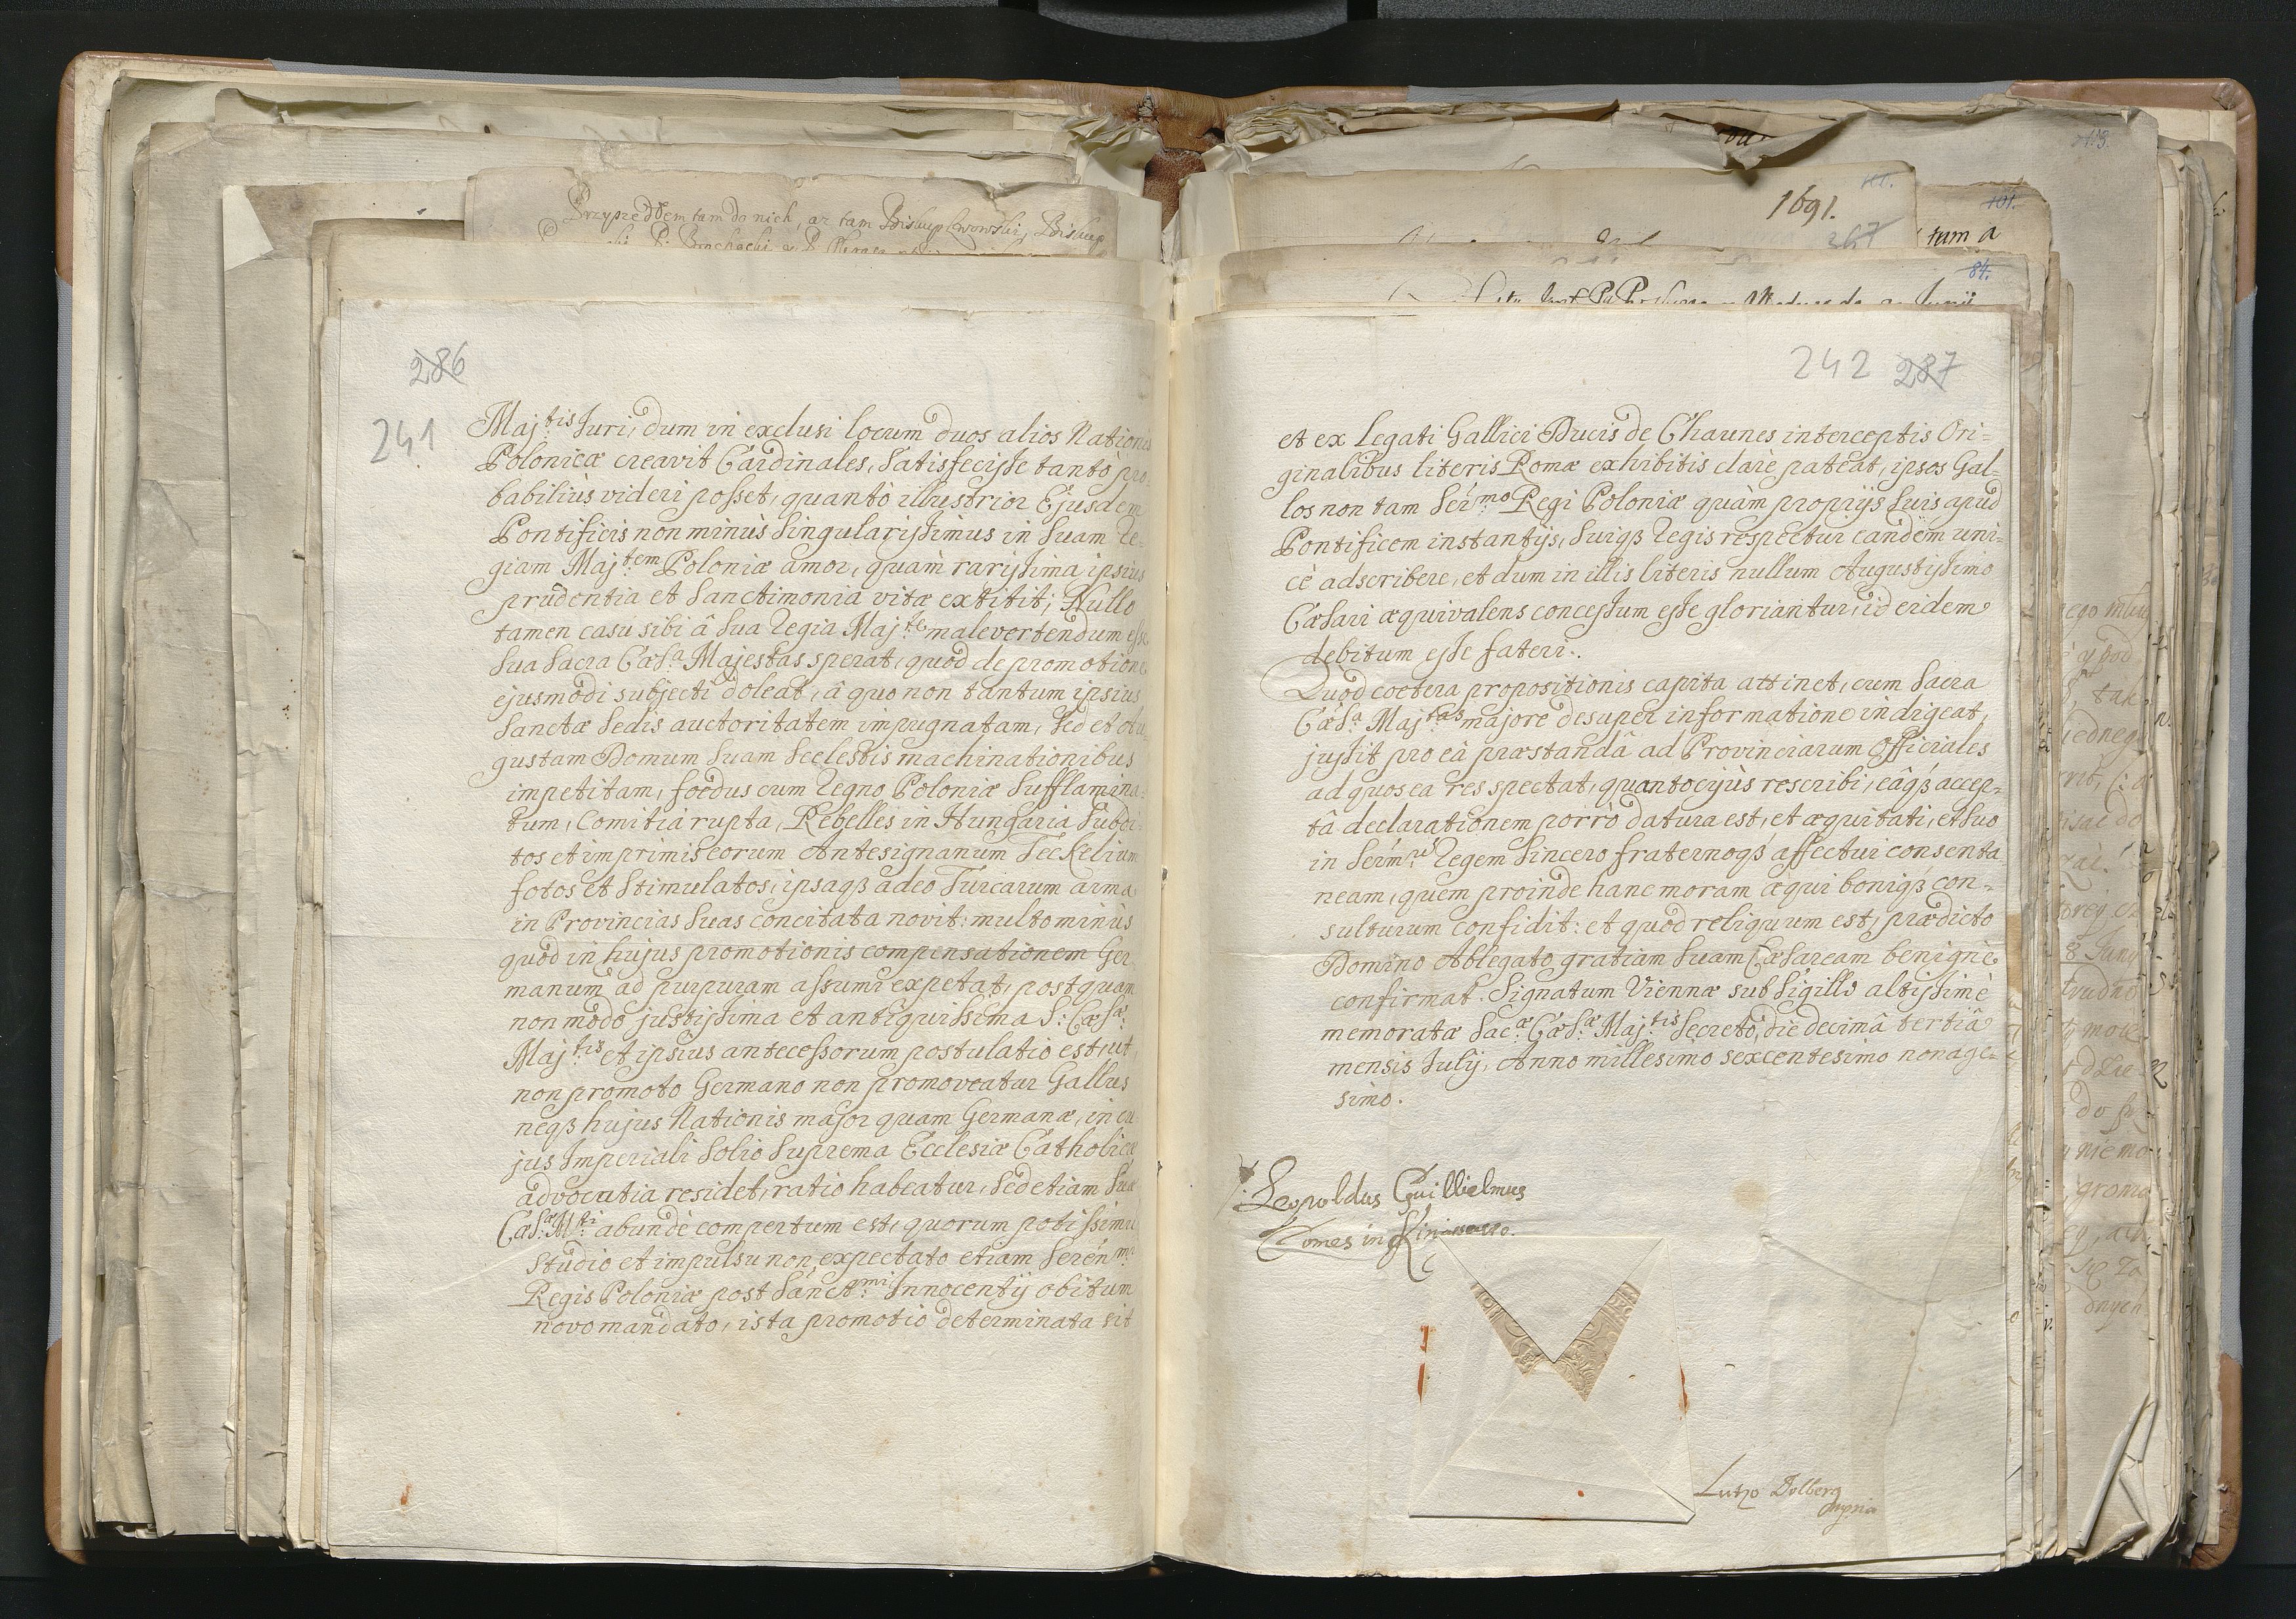 Przyszedłem tam do nich, aż tam Biskup Lwowski, Biskup
286
241
Maj:tis Iuri, dum in exclusi locum duos alios Nationis
Polonicæ creavit Cardinales, satisfecisse tantò pro-
babiliùs videri posset, quantò illustrior Ejusdem
Pontificis non minùs singularissimus in suam Re-
giam Maj:tem Poloniæ amor, quàm rarissima ipsius
prudentia et sanctimonia vitæ extitit; Nullo
tamen casu sibi â sua Regia Maj:te malevertendum esse
sua sacra Cæs:a Majestas sperat, quod de promotione
ejusmodi subjecti doleat, â quo non tantum ipsius
sanctæ sedis auctoritatem impugnatam, sed et Au-
gustam Domum suam scelestis machinationibus
impetitam, foedus cum Regno Poloniæ sufflamina-
tum, Comitia rupta, Rebelles in Hungaria subdi-
tos et imprimis eorum Antesignanum Teckelium
fotos et stimulatos, ipsaqз adeo Turcarum arma
in Provincias suas concitata novit: multo minùs
quòd in hujus promotionis compensationem Ger-
manum ad purpuram assumi expetat, postquam
non modò justissima et antiquissima S: Cæs:æ
Maj:tis et ipsius antecessorum postulatio est, ut
non promoto Germano non promoveatur Gallus
neqз hujus Nationis major quam Germanæ, in cu-
jus Imperiali solio suprema Ecclesiæ Catholicæ
advocatia residet, ratio habeatur, sed etiam suæ
Cæs:æ M:ti abundè compertum est, quorum potissimù
studio et impulsu non expectato etiam Seren:mi
Regis Poloniæ post Sanct:mi Innocentij obitum
novo mandato, ista promotio determinata sit
1691.
267
tum a
101.
84.
242 287
et ex Legati Gallici Ducis de Chaunes interceptis Ori-
ginalibus literis Romæ exhibitis clarè pateat, ipsos Gal-
los non tam Ser:mo Regi Poloniæ quàm proprijs suis apud
Pontificem instantijs, suiqз Regis respectui eandem uni-
cè adscribere, et dum in illis literis nullum Augustissimo
Cæsari æquivalens concessum esse gloriantur, id eidem
debitum esse fateri.
Quòd coetera propositionis capita attinet, cum Sacra
Cæs:a Maj:tas majore desuper informatione indigeat,
jussit pro eâ præstandâ ad Provinciarum Officiales
ad quos ea res spectat, quantocyùs rescribi, eâqз accep-
tâ declarationem porrò datura est, et æquitati, et suo
in Serm:um Regem sincero fraternoqз affectui consenta
neam, quem proinde hanc moram æqui boniqз con-
sulturum confidit: et quòd reliquum est, prædicto
Domino Ablegato gratiam suam Cæsaream benignè
confirmat. Signatum Viennæ sub sigillo altissimè
memoratæ Sac:æ Cæs:æ Maj:tis Secretò, die decimâ tertiâ
mensis Iulij, Anno millesimo sexcentesimo nonage-
simo.
Leopoldus Guillielmus
Comes in
Dolberg
mpria
8 Juny